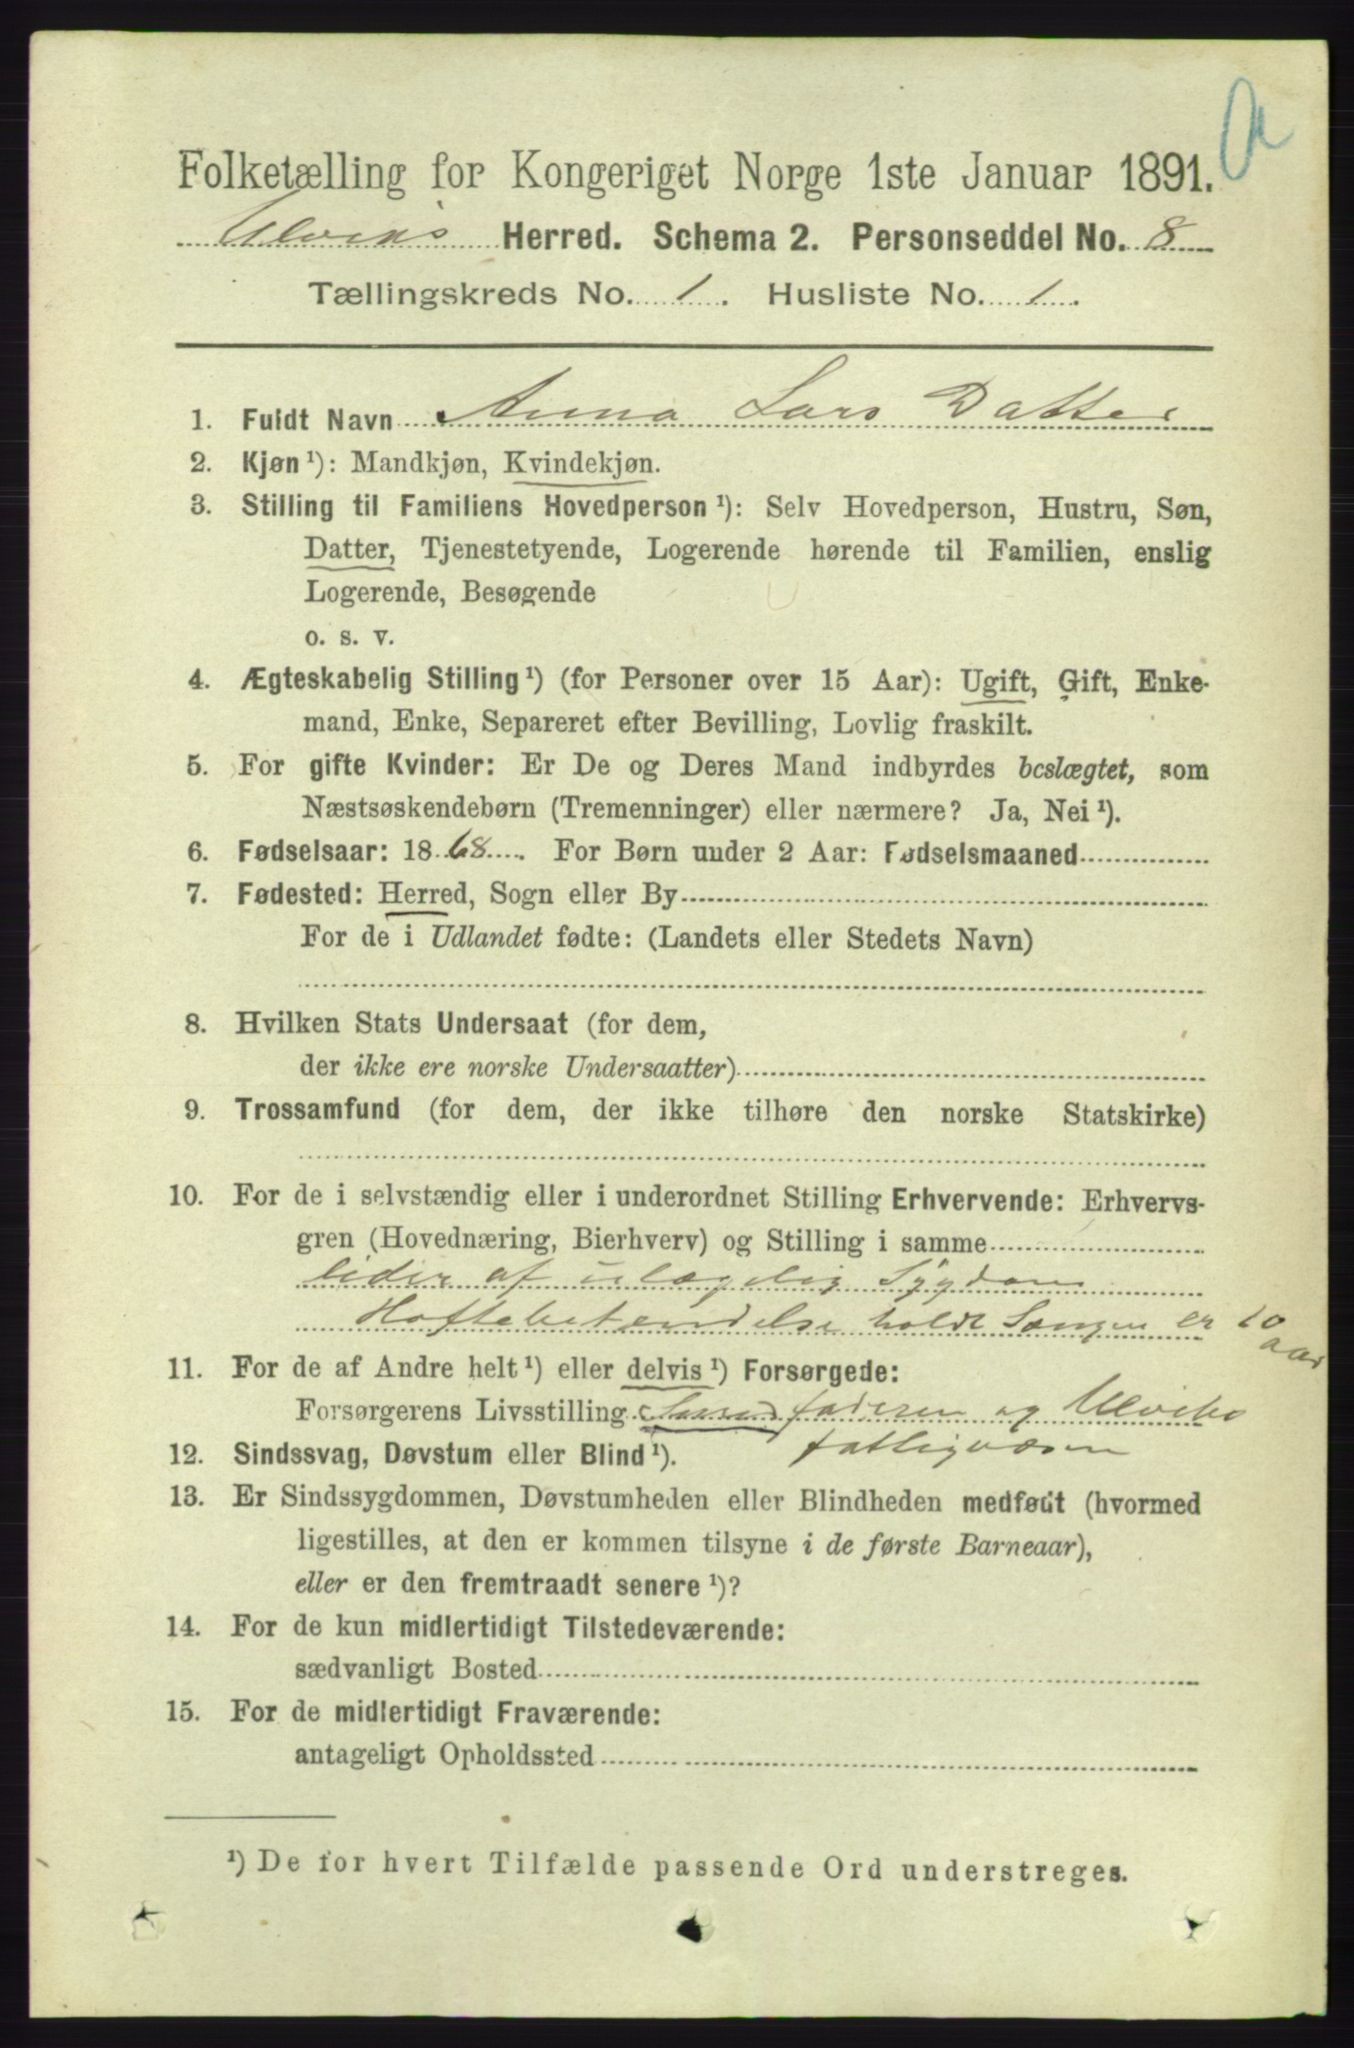 Folketælling for Kongeriget Norge 1ste Januar 1891.
Ulviks Herred. Schema 2. Personseddel No. 8
Tællingskreds No. 1. Husliste No. 1.
1. Fuldt Navn Anna Lars Datter
2. Kjøn ¹): Mandkjøn, Kvindekjøn.
3. Stilling til Familiens Hovedperson ¹): Selv Hovedperson, Hustru, Søn,
Datter, Tjenestetyende, Logerende hørende til Familien, enslig
Logerende, Besøgende
o. s. v.
4. Ægteskabelig Stilling ¹) (for Personer over 15 Aar): Ugift, Gift, Enke-
mand, Enke, Separeret efter Bevilling, Lovlig fraskilt.
5. For gifte Kvinder: Er De og Deres Mand indbyrdes beslægtet, som
Næstsøskendebørn (Tremenninger) eller nærmere? Ja, Nei ¹).
6. Fødselsaar: 1868. For Børn under 2 Aar: Fødselsmaaned
7. Fødested: Herred, Sogn eller By
For de i Udlandet fødte: (Landets eller Stedets Navn)
8. Hvilken Stats Undersaat (for dem,
der ikke ere norske Undersaatter)
9. Trossamfund (for dem, der ikke tilhøre den norske Statskirke)
10. For de i selvstændig eller i underordnet Stilling Erhvervende: Erhvervs-
gren (Hovednæring, Bierhverv) og Stilling i samme
lider af ulægelig Sygdom
Hoftebetændelse holdt Sængen er 10
aar
11. For de af Andre helt ¹) eller delvis ¹) Forsørgede:
Forsørgerens Livsstilling faderen og Ulviks
fattigvæsen
12. Sindssvag, Døvstum eller Blind ¹).
13. Er Sindssygdommen, Døvstumheden eller Blindheden medfødt (hvormed
ligestilles, at den er kommen tilsyne i de første Barneaar),
eller er den fremtraadt senere ¹)?
14. For de kun midlertidigt Tilstedeværende:
sædvanligt Bosted
15. For de midlertidigt Fraværende:
antageligt Opholdssted
¹) De for hvert Tilfælde passende Ord understreges.